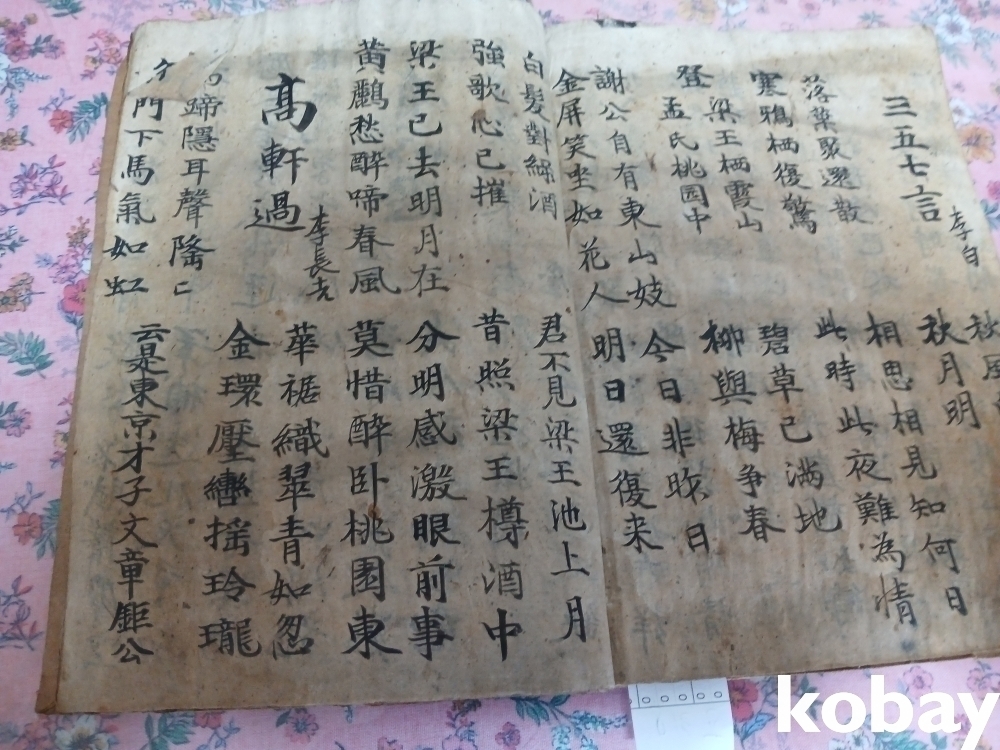 三五七言 李白
秋風
秋月明
落葉聚還散
寒鴉栖復驚
相思相見知何日
此時此夜難為情
登梁王栖霞山
孟氏桃园中
碧草已滿地
柳與梅争春
謝公自有東山妓
金屏笑坐如花人
今日非昨日
明日還復来
白髮對綠酒
強歌心已摧
君不見梁王池上月
昔照梁王樽酒中
梁王已去明月在
黄鸝愁醉啼春風
分明感激眼前事
莫惜醉卧桃園東
高軒過 李長吉
華裾織翠青如忽
金環壓轡摇玲瓏
蹄隱耳聲隆〻
門下馬氣如虹
云是東京才子文章鉅公
kobay